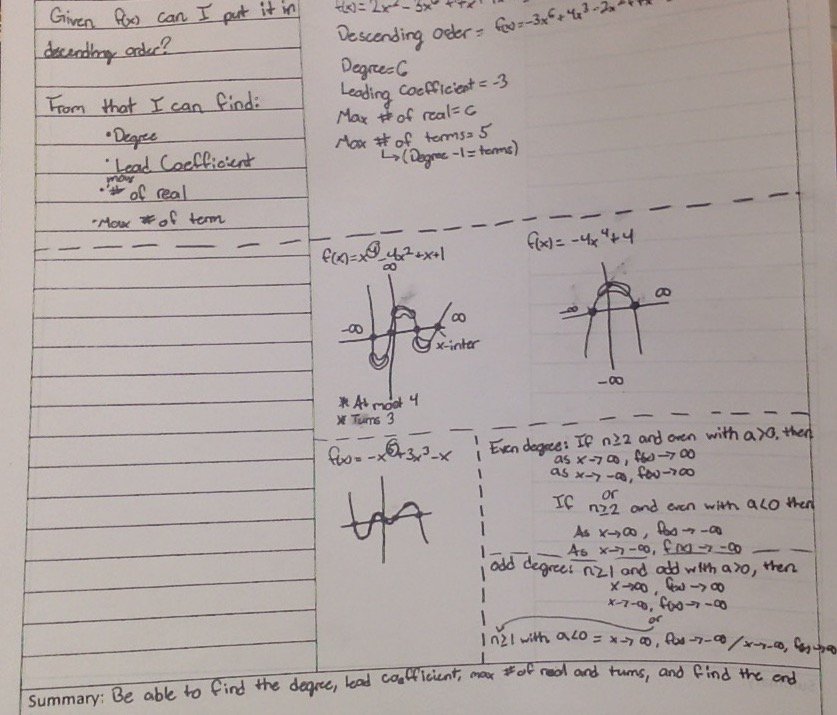 Given f(x) can I put it in
decending order?
From that I can find:
• Degree
• Lead Coefficient
max
• # of real
• Max # of term
Descending order = f(x)=-3x⁶+4x³-2x²
Degree=6
Leading coefficient = -3
Max # of real=6
Max # of terms=5
↳(Degree -1=terms)
f(x)=x⁴-4x²+x+1
∞
-∞
∞
x-inter
* At most 4
* Turns 3
f(x)= -4x⁴+4
-∞
∞
-∞
f(x)= -x⁵+3x³-x
Even degree: If n≥2 and even with a>0, then
as x→∞, f(x)→∞
as x→-∞, f(x)→∞
or
If n≥2 and even with a<0 then
As x→∞, f(x)→-∞
As x→-∞, f(x)→-∞
odd degree: n≥1 and odd with a>0, then
x→∞, f(x)→∞
x→-∞, f(x)→-∞
or
n≥1 with a<0 = x→∞, f(x)→-∞/x→-∞, f(x)→∞
Summary: Be able to find the degree, lead coefficient, max # of real and turns, and find the end